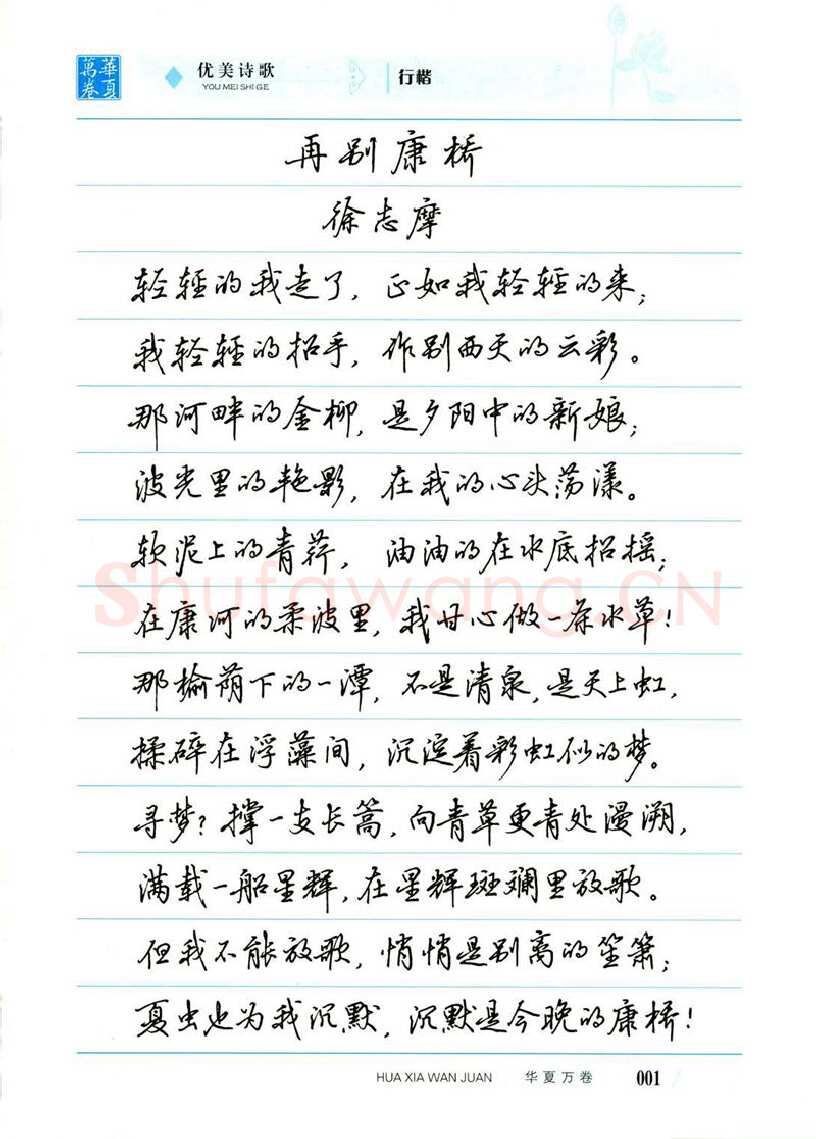 華夏萬卷
优美诗歌
YOU MEI SHI GE
行楷
再别康桥
徐志摩
轻轻的我走了，正如我轻轻的来；
我轻轻的招手，作别西天的云彩。
那河畔的金柳，是夕阳中的新娘；
波光里的艳影，在我的心头荡漾。
软泥上的青荇，油油的在水底招摇；
在康河的柔波里，我甘心做一条水草！
那榆荫下的一潭，不是清泉，是天上虹，
揉碎在浮藻间，沉淀着彩虹似的梦。
寻梦？撑一支长篙，向青草更青处漫溯，
满载一船星辉，在星辉斑斓里放歌。
但我不能放歌，悄悄是别离的笙箫；
夏虫也为我沉默，沉默是今晚的康桥！
Shufawang.CN
HUA XIA WAN JUAN 华夏万卷 001